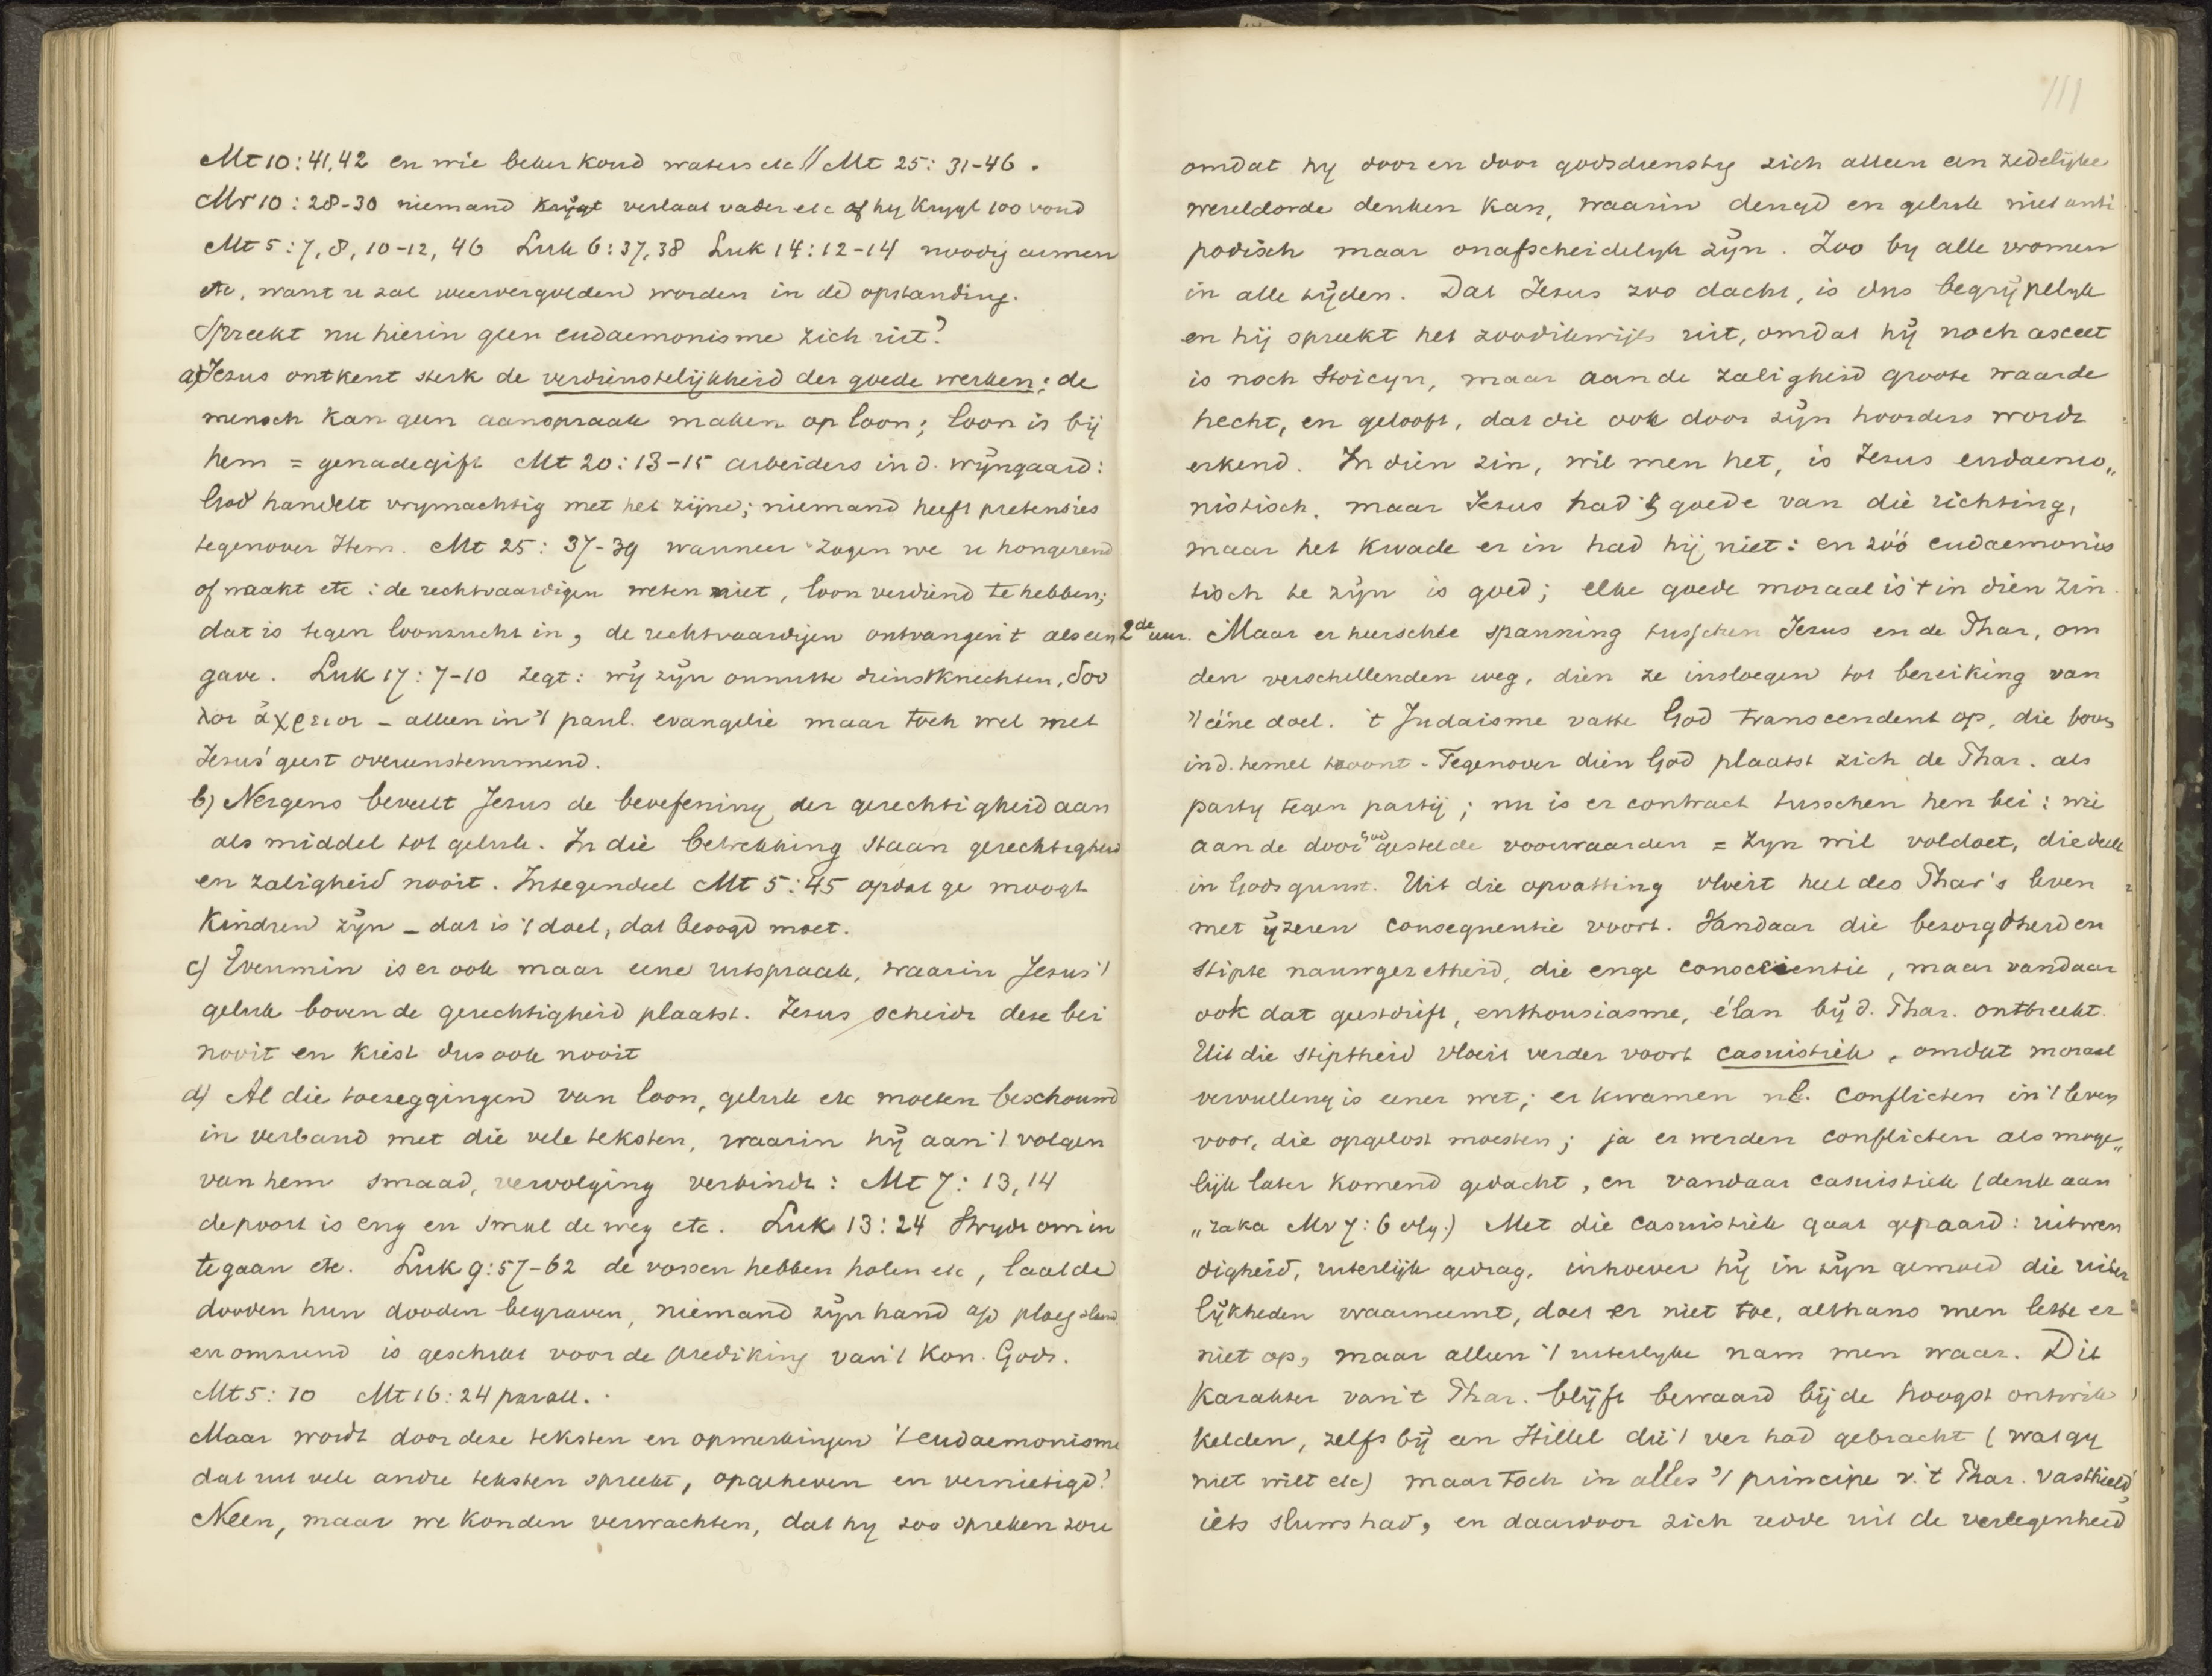 Mt 10:41,42 en wie beker koud waters etc // Mt 25: 31-46.
Mr 10:28-30 niemand krijgt verlaat vader etc of hy krygt 100 voud
Mt 5:7,8,10-12,46 Luk 6:37,38 Luk 14:12-14 noodig armen
etc, want u zal weervergolden worden in de opstanding.
Spreekt nu hierin geen eudaemonisme zich uit?
a) Jezus ontkent sterk de verdienstelijkheid der goede werken: de
mensch kan geen aanspraak maken op loon; loon is bij
hem = genadegift Mt 20:13-15 arbeiders in d. wijngaard:
God handelt vrymachtig met het zijne; niemand heeft pretensies
tegenover Hem. Mt 25: 37-39 wanneer zagen we u hongerend
of naakt etc: de rechtvaardigen weten niet, loon verdiend te hebben;
dat is tegen loonzucht in, de rechtvaardigen ontvangen 't als een
gave. Luk 17:7-10 zegt: wij zijn onnutte dienstknechten, δου
λοι ἀχρειοι - alleen in 't paul. evangelie maar toch wel met
Jezus' geest overeenstemmend.
b) Nergens beveelt Jezus de beoefening der gerechtigheid aan
als middel tot geluk. In die betrekking staan gerechtigheid
en zaligheid nooit. Integendeel Mt 5:45 opdat ge moogt
Kindren zijn - dat is 't doel, dat beoogd moet.
c) Evenmin is er ook maar eene uitspraak, waarin Jezus 't
geluk boven de gerechtigheid plaatst. Jezus scheidt deze bei
nooit en kiest dus ook nooit
d) Al die toezeggingen van loon, geluk etc moeten beschouwd
in verband met die vele teksten, waarin hij aan 't volgen
van hem smaad, vervolging verbindt: Mt 7: 13,14
de poort is eng en smal de weg etc. Luk 13:24 Strydt om in
te gaan etc. Luk 9:57-62 de vossen hebben holen etc, laat de
dooden hun dooden begraven, niemand zijn hand a/d ploeg slaand
en omziend is geschikt voor de prediking van 't Kon. Gods.
Mt 5:10 Mt 16:24 parall.
Maar wordt door deze teksten en opmerkingen 't eudaemonisme
dat uit vele andre teksten spreekt, opgeheven en vernietigd?
Neen, maar we konden verwachten, dat hy zoo spreken zou
111
omdat hy door en door godsdienstig zich alleen een zedelijke
wereldorde denken kan, waarin deugd en geluk niet anti
podisch maar onafscheidelyk zijn. Zoo by alle vromen
in alle tijden. Dat Jezus zoo dacht, is ons begrijpelyk
en hij spreekt het zoo dikwijls uit, omdat hij noch asceet
is noch Stoicyn, maar aan de zaligheid groote waarde
hecht, en gelooft, dat die ook door zijn hoorders wordt
erkend. In dien zin, wil men het, is Jezus eudaemo„
nistisch. maar Jezus had 't goede van die richting,
maar het kwade er in had hij niet: en zóó eudaemonis
tisch te zijn is goed; elke goede moraal is 't in dien zin.
2de uur. Maar er heerschte spanning tusschen Jezus en de Phar, om
den verschillenden weg, dien ze insloegen tot bereiking van
't ééne doel. 't Judaisme vatte God transcendent op, die boven
in d. hemel troont. Tegenover dien God plaatst zich de Phar. als
party tegen partij; nu is er contract tusschen hen bei: wie
aan de door God gestelde voorwaarden = zyn wil voldoet, die deelt
in Gods gunst. Uit die opvatting vloeit heel des Phar's leven
met ijzeren consequentie voort. Vandaar die bezorgdheid en
stipte nauwgezetheid, die enge conscientie, maar vandaar
ook dat geestdrift, enthousiasme, élan bij d. Phar. ontbreekt.
Uit die stiptheid vloeit verder voort casuistiek, omdat moraal
vervulling is eener wet; er kwamen nl. conflicten in 't leven
voor, die opgelost moesten; ja er werden conflicten als moge„
lijk later komend gedacht, en vandaar casuistiek (denk aan
„raka Mr 7:6 vlg.) Met die casuistiek gaat gepaard: uitwen
digheid, uiterlijk gedrag. inhoever hij in zijn gemoed die uiter
lijkheden waarneemt, doet er niet toe, althans men lette er
niet op, maar alleen 't uiterlyke nam men waar. Dit
karakter van 't Phar. blijft bewaard bij de hoogst ontwik
kelden, zelfs bij een Hillel die 't ver had gebracht (wat gy
niet wilt etc) maar toch in alles 't principe v. 't Phar. vasthield,
iets sluws had, en daardoor zich redde uit de verlegenheid